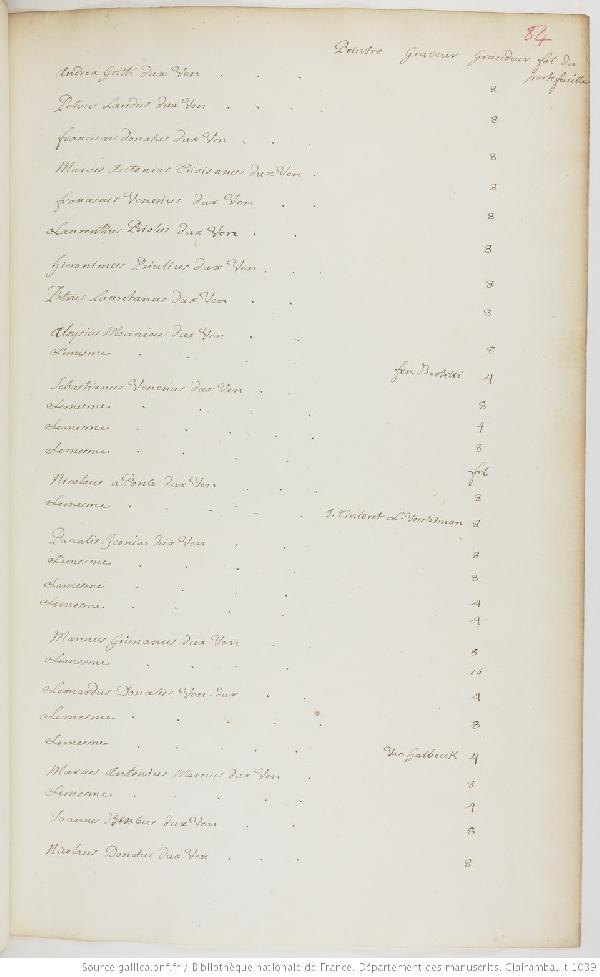 84
Peintre Graveur Grandeur fol. du
portefeuille
Andrea Gritti dux Ven . . . 8
Petrus Landus dux Ven . . . 8
franciscus Donatus dux Ven . . 8
Marcus Antonius Trivisanus dux Ven . 8
franciscus Venerius dux Ven . . 8
Laurentius Priolus dux Ven . . 8
hieronimus Priulius dux Ven . . 8
Petrus Lauretanus dux Ven . . 8
Aloysius Mocenicus dux Ven . . 8
Lemesme . . . . fer. Bertelli 4
Sebastianus Venerius dux Ven . . 8
Lemesme . . . . 4
Lemesme . . . . 8
Lemesme . . . . fol
Nicolaus a Ponte dux Ven . . 8
Lemesme . . . J. Tinteret L. Vorsterman 8
Pascalis Ciconius dux Ven . . 8
Lemesme . . . . 8
Lemesme . . . . 4
Lemesme . . . . 4
Marinus Grimanus dux Ven . . 8
Lemesme . . . . 16
Leonardus Donatus Ven. dux . . 4
Lemesme . . . . 8
Lemesme . . . . Van halbeeck 4
Marcus Antonius Memus dux Ven . 8
Lemesme . . . . 4
Joannes Bembus dux Ven . . 8
Nicolaus Donatus dux Ven . . 8
Source gallica.bnf.fr / Bibliothèque nationale de France. Département des manuscrits. Clairambault 1039